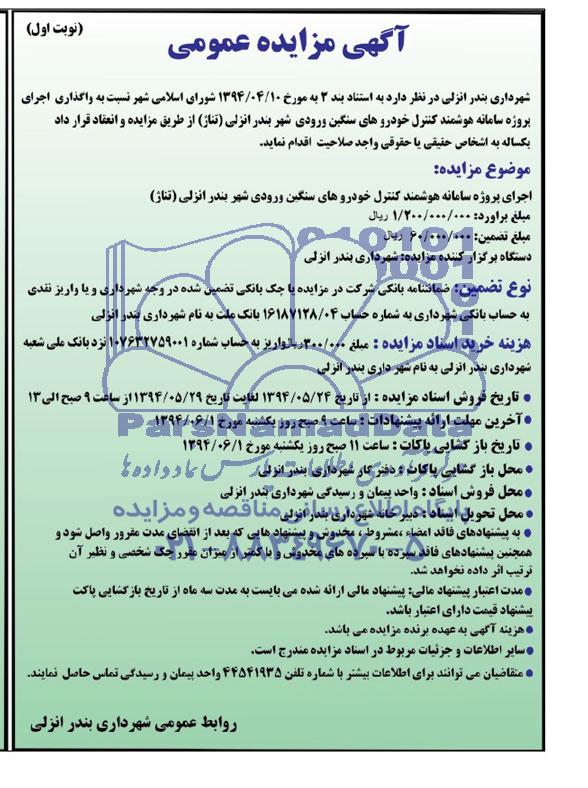 (نوبت اول)
آگهی مزایده عمومی
شهرداری بندر انزلی در نظر دارد به استناد بند ۲ به مورخ ۱۳۹۴/۰۴/۱۰ شورای اسلامی شهر نسبت به واگذاری اجرای
پروژه سامانه هوشمند کنترل خودرو های سنگین ورودی شهر بندر انزلی (تناژ) از طریق مزایده و انعقاد قرار داد
یکساله به اشخاص حقیقی یا حقوقی واجد صلاحیت اقدام نماید.
موضوع مزایده:
اجرای پروژه سامانه هوشمند کنترل خودرو های سنگین ورودی شهر بندر انزلی (تناژ)
مبلغ براورد: ۱/۲۰۰/۰۰۰/۰۰۰ ریال
مبلغ تضمین: ۶۰/۰۰۰/۰۰۰ ریال
دستگاه برگزار کننده مزایده: شهرداری بندر انزلی
نوع تضمین: ضمانتنامه بانکی شرکت در مزایده یا چک بانکی تضمین شده در وجه شهرداری و یا واریز نقدی
به حساب بانکی شهرداری به شماره حساب ۱۶۱۸۷۱۲۸/۰۴ بانک ملت به نام شهرداری بندر انزلی
هزینه خرید اسناد مزایده : مبلغ ۳۰۰/۰۰۰ریال واریز به حساب شماره ۰۱۰۷۶۳۲۷۵۹۰۰۱ نزد بانک ملی شعبه
شهرداری بندر انزلی به نام شهر داری بندر انزلی
● تاریخ فروش اسناد مزایده : از تاریخ ۱۳۹۴/۰۵/۲۴ لغایت تاریخ ۱۳۹۴/۰۵/۲۹ از ساعت ۹ صبح الی۱۳
● آخرین مهلت ارائه پیشنهادات : ساعت ۹ صبح روز یکشنبه مورخ ۱۳۹۴/۰۶/۱
● تاریخ باز گشایی پاکات : ساعت ۱۱ صبح روز یکشنبه مورخ ۱۳۹۴/۰۶/۱
● محل باز گشایی پاکات : دفتر کار شهرداری بندر انزلی
● محل فروش اسناد : واحد پیمان و رسیدگی شهرداری بندر انزلی
● محل تحویل اسناد : دبیر خانه شهرداری بندر انزلی
● به پیشنهادهای فاقد امضاء ،مشروط ، مخدوش و پیشنهاد هایی که بعد از انقضای مدت مقرور واصل شود و
همچنین پیشنهادهای فاقد سپرده یا سپرده های مخدوش و یا کمتر از میزان مقرر چک شخصی و نظیر آن
ترتیب اثر داده نخواهد شد.
● مدت اعتبار پیشنهاد مالی: پیشنهاد مالی ارائه شده می بایست به مدت سه ماه از تاریخ بازگشایی پاکت
پیشنهاد قیمت دارای اعتبار باشد.
● هزینه آگهی به عهده برنده مزایده می باشد.
● سایر اطلاعات و جزئیات مربوط در اسناد مزایده مندرج است.
● متقاضیان می توانند برای اطلاعات بیشتر با شماره تلفن ۴۴۵۴۱۹۳۵ واحد پیمان و رسیدگی تماس حاصل نمایند.
روابط عمومی شهرداری بندر انزلی
ParsNamadData
پایگاه اطلاع رسانی مناقصه و مزایده